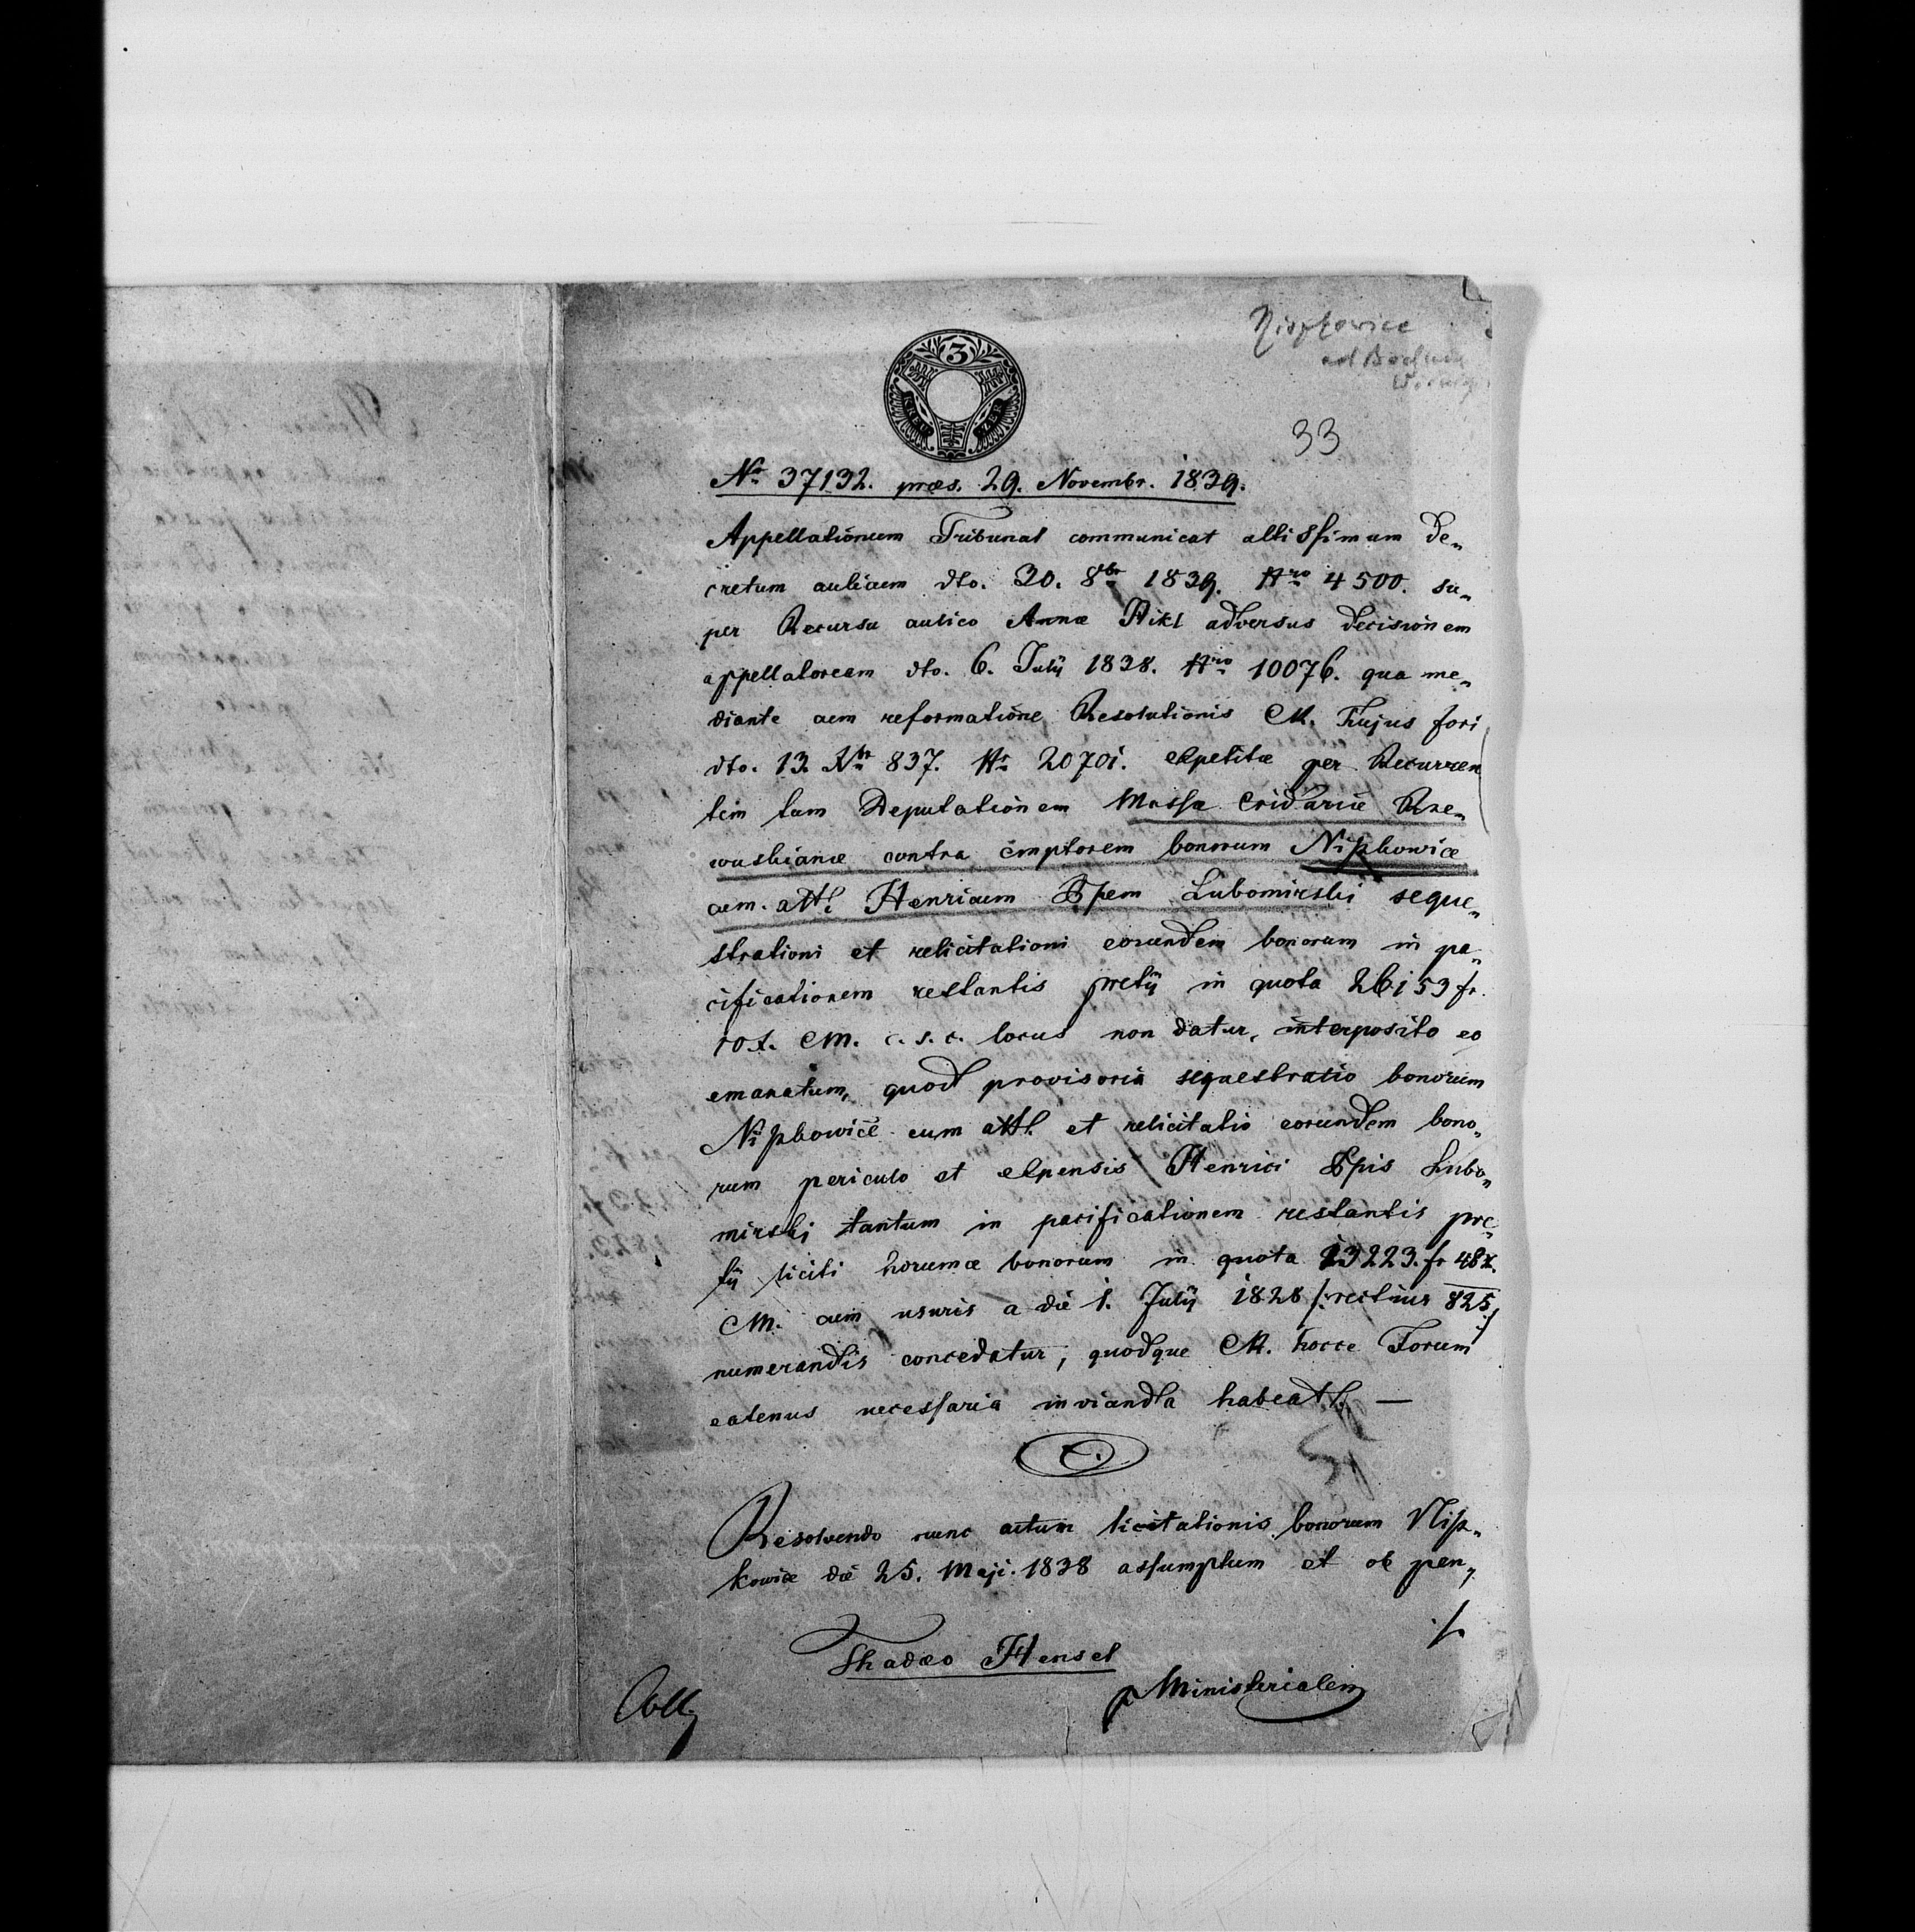 33
3
KREU ZER
Nr. 37132. præs. 29. Novembr. 1839.
Appellationum Tribunal communicat altissimum De„
cretum aulicum dto. 30. 8br 1839. Nro 4500. su„
per Recursu aulico Annæ Hikl adversus Decisionem
appellatoream dto. 6. July 1838. Nro 10076. qua me„
diante cum reformatione Resolutionis CM. hujus fori
dto. 13. Xbr 837. Nr. 20701. expetitæ per Recurren
tem tam Deputationem Massæ Cridariæ Rze„
wuskianæ contra emptorem bonorum Niżkowice
cum. att. Henricum Ppem Lubomirski seque„
strationi et relicitationi eorundem bonorum in pa„
cificationem restantis pretÿ in quota 26153 fr.
10x. CM. c.s.c. locus non datur, interposito eo
emanatum, quod provisoria sequestratio bonorum
Niżkowice cum att. et relicitatio eorundem bono„
rum periculo et expensis Henrici Ppis Lubo„
mirski tantum in pacificationem restantis pre„
tÿ liciti horumce bonorum in quota 23223. fr 48x.
CM. cum usuris a die 1. July 1828 /: rectius 825 :/
numerandis concedatur; quodque CM. hocce Forum
eatenus necessaria inviandta habeat. —
C.
Resolvendo nunc actum licitationis bonorum Niż„
kowice die 25. Maji. 1838 assumptum et ob pen„
./.
Thadæo Hensel
p Ministerialem
Coll.